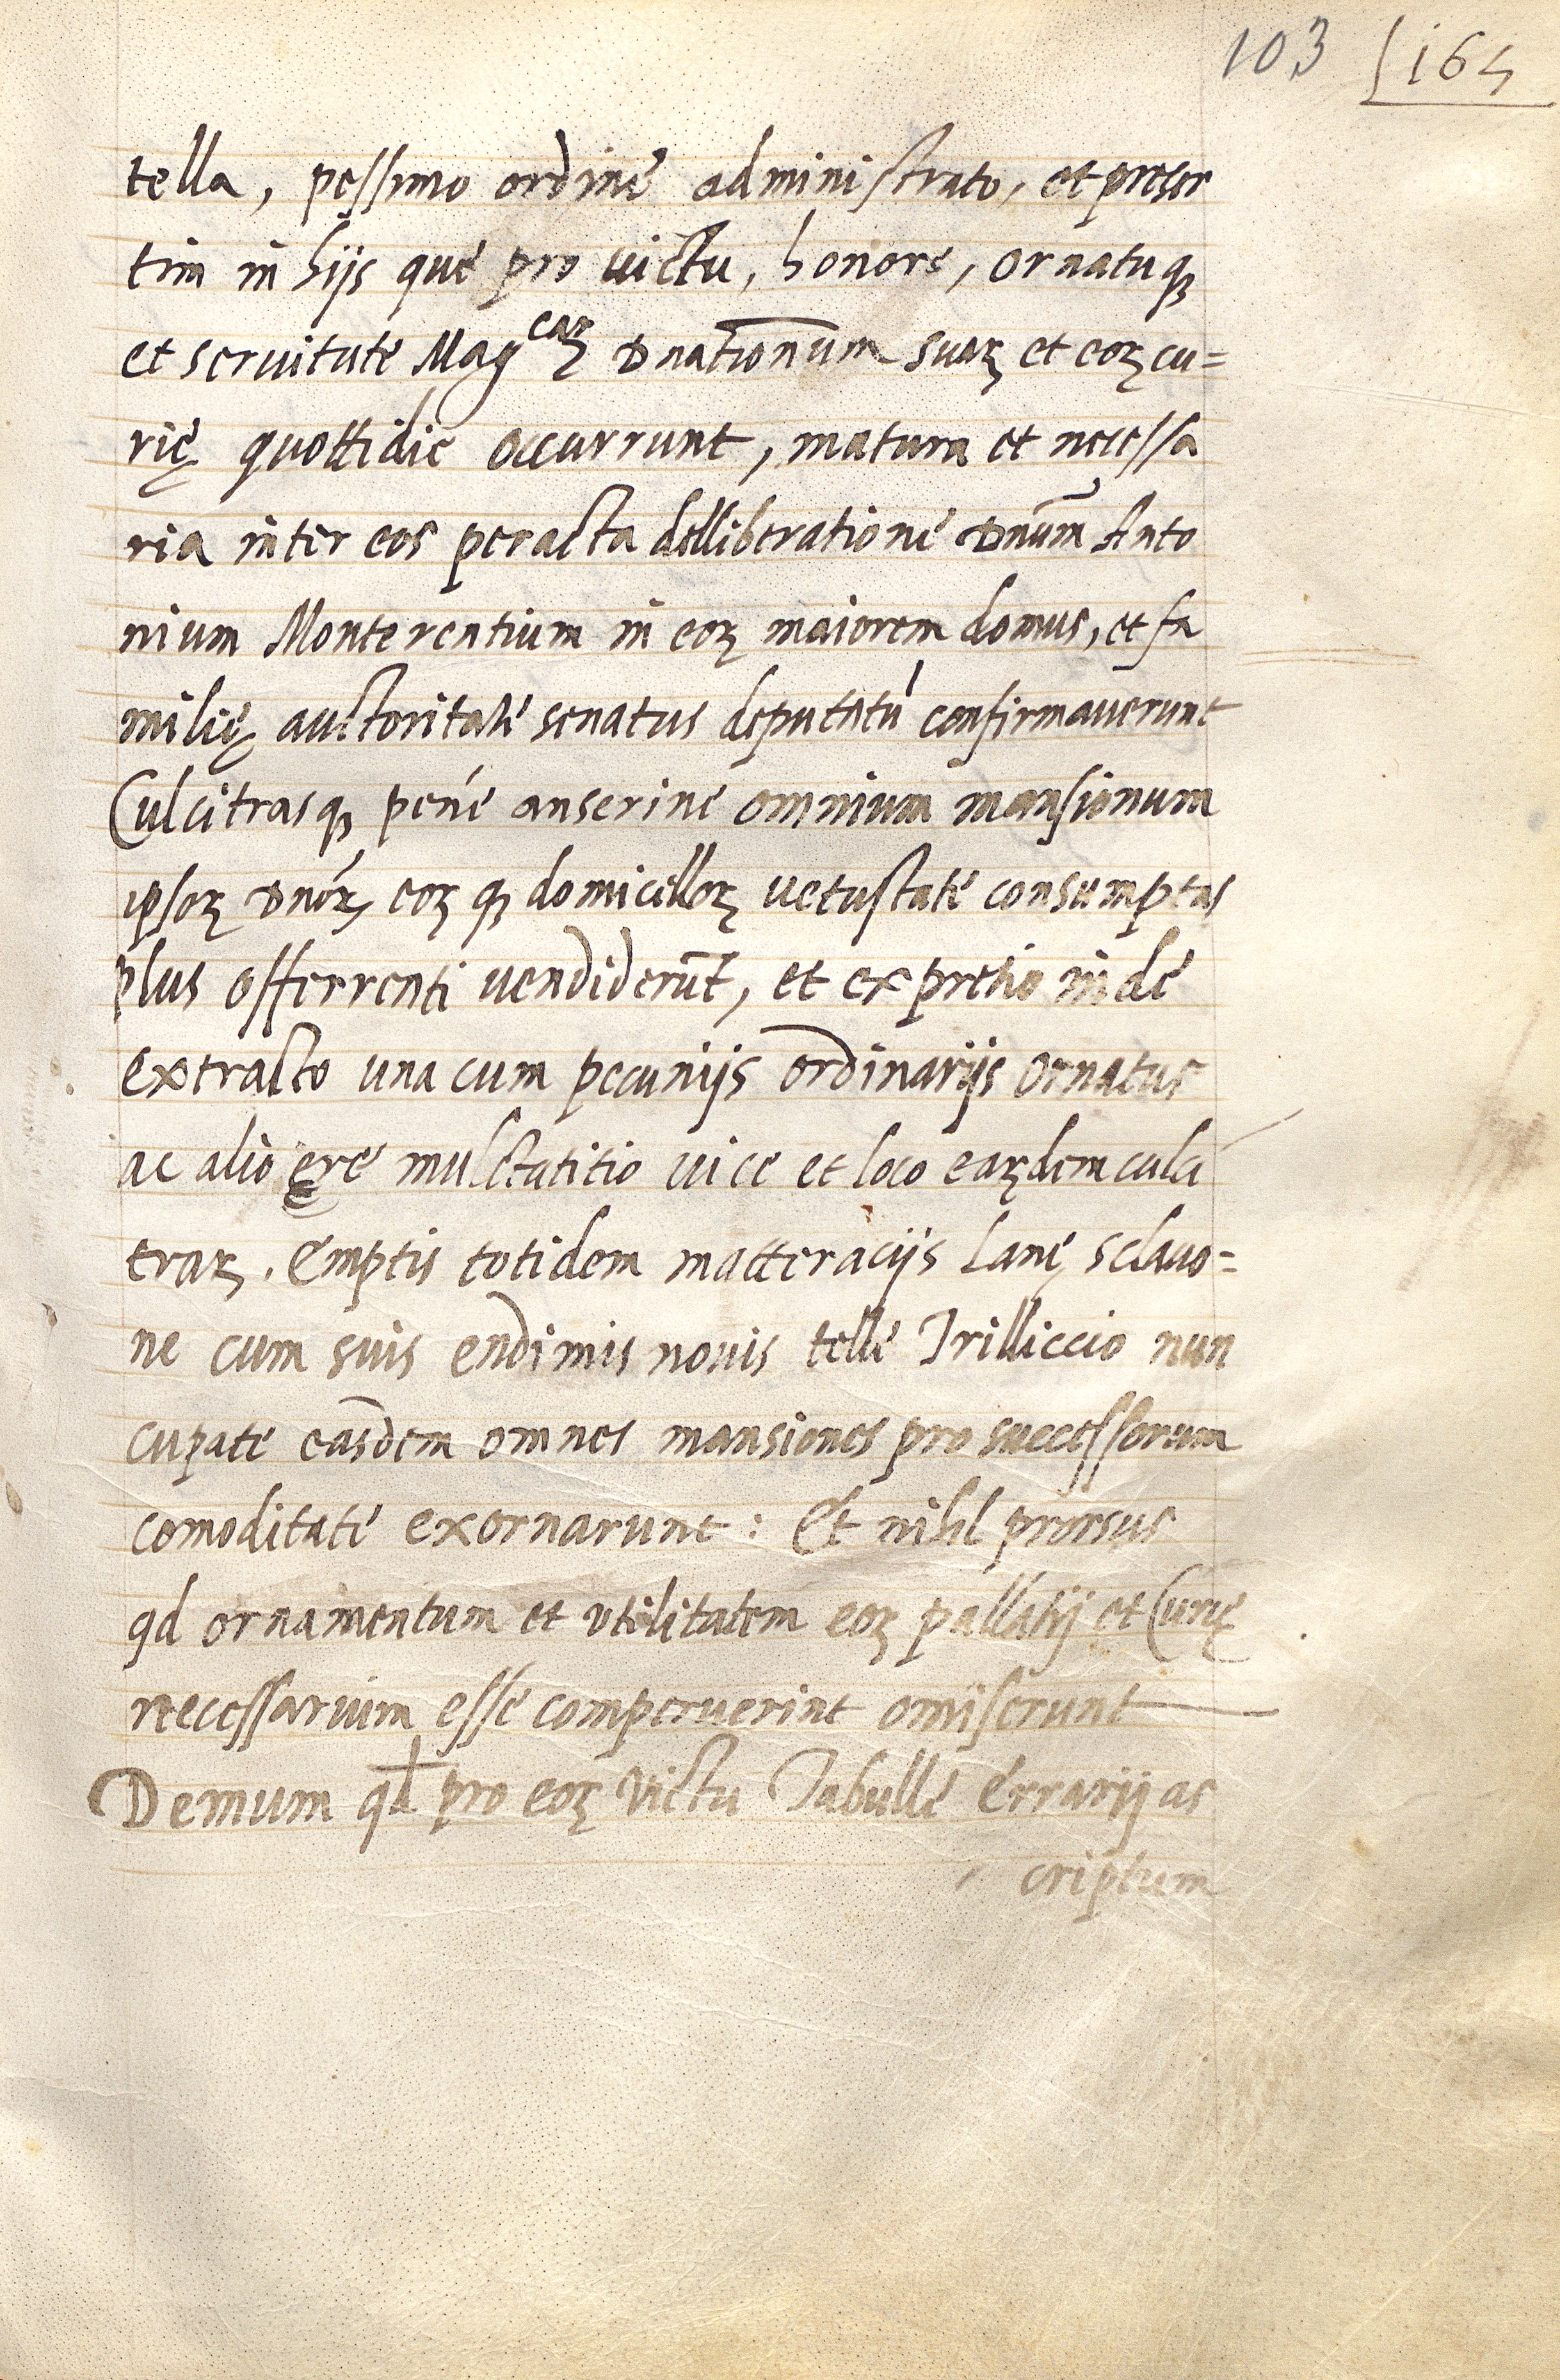 103 164
tella, pessimo ordine administrato, et preser
tim in hijs que pro uictu, honore, ornatuqꝫ
et seruitute Mag^caꝝ Dnationum suaꝝ et eoꝝ cu=
rię quottidie occurrunt, matura et necessa
ria inter eos peracta delliberatione Dnum̄ Anto
nium Monterentium in eoꝝ maiorem domus, et fa
milię auctoritate senatus deputatū confirmauerunt
Culcitrasqꝫ pene anserine omnium mansionum
ipsoꝝ Dnoꝝ, eoꝝ qꝫ domicelloꝝ uetustate consumptas
plus offerrenti uendiderūt, et ex pretio inde
extracto una cum pecunijs ordinarijs ornatus
ac alio ęre mulctatitio uice et loco eaꝝdem culci
traꝝ. Emptis totidem matteracijs Lanę sclauo=
ne cum suis endimis nouis telle Trilliccio nun
cupate easdem omnes mansiones pro successorum
comoditate exornarunt: Et nihil prorsus
qd ornamentum et utilitatem eoꝝ pallatij et Curię
necessarium esse comperuerint omiserunt
Demum qd pro eoꝝ Victu Tabulle Errarij as
criptum